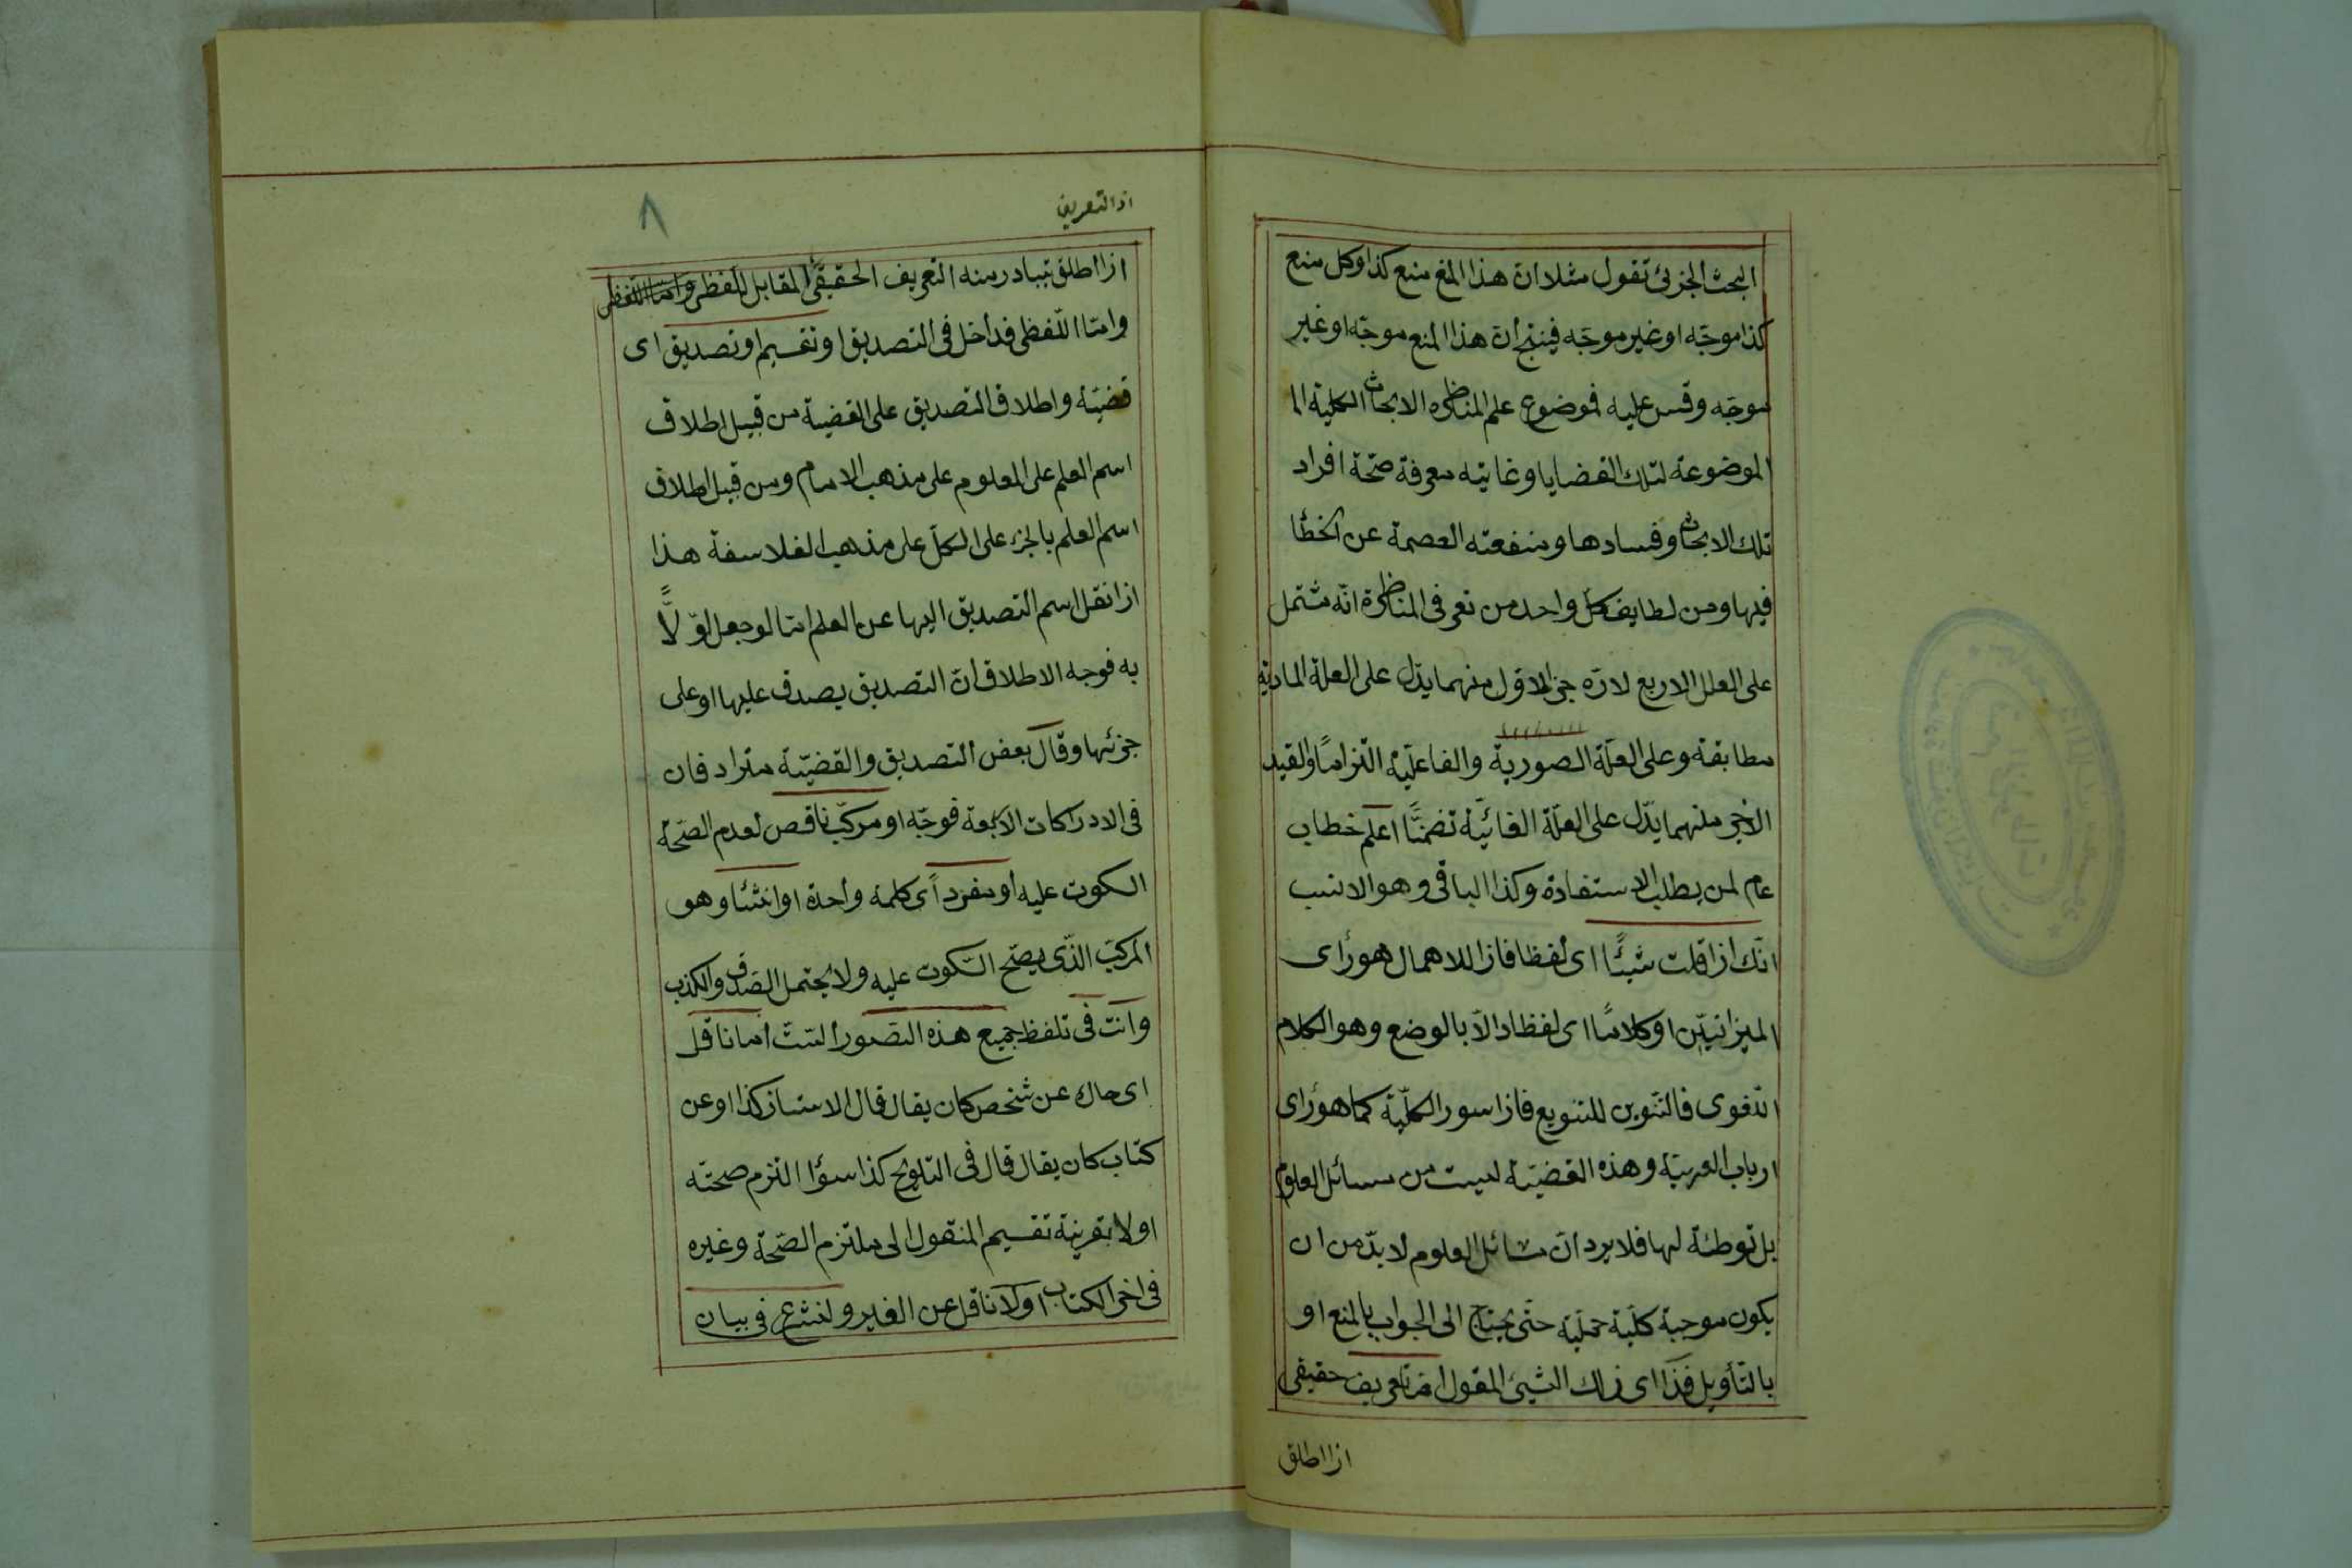 البحث الجزئى تقول مثلا ان هذا المنع منع كذا وكل منع
كذا موجّه او غير موجّه فينتج أن هذا المنع موجّه او غير
موجّه وقس عليه فموضوع علم المناظره الابحاث الكلية الما
الموضوعة لتلك القضايا وغايته معرفة صحّة افراد
تلك الابحاث وفسادها ومنفعته العصمة عن الخطأ
فيها ومن لطايف كل واحد من تعر فى المناظرة انّه مشتمل
على العلل الاربع لانّه جزء الاول منهما يدّل على العلة المادية
مطابقة وعلى العلّة الصورية والفاعليّة التزامًا والقيد
الاخير منهما يدّل على العلّة الغائيّة تضمنًّا اعلم خطاب
عام لمن يطلب الاستفادة وكذا الباقى وهو الانسب
انّك اذا قلت شيئًا اى لفظا فاذا للاهمال هو رأى
الميزانيّين او كلامًا اى لفظا دالّا بالوضع وهو الكلام
اللغوى فالتنوين للتنويع فاذا سور الكلّية كما هو رأى
ارباب العربيّة وهذه القضيّة ليست من مسائل العلوم
بل توطئة لها فلا يرد انّ مسائل العلوم لا بدّ من ان
يكون موجبة كلّية حمليّة حتّى يحتاج الى الجواب بالمنع او
بالتأويل فذا اى ذلك الشيئ المقول امّا تعريف حقيقى
اذا اطلق
اذ التعريف
٨
اذا اطلق تبادر منه التعريف الحقيقى المقابل للفظى وامّا اللفظى
وامّا اللّفظى فداخل فى التصديق او تقسيم او تصديق اى
قضيّة واطلاق التصديق على القضية من قبيل اطلاق
اسم العلم على المعلوم على مذهب الامام ومن قبيل اطلاق
اسم العلم بالجزء على الكلّ على مذهب الفلاسفة هذا
اذا نقل اسم التصديق اليها عن العلم امّا لو جعل اوّلًا
به فوجه الاطلاق انّ التصديق يصدق عليها او على
جزئها وقال بعض التصديق والقضيّة مترادفان
فى الادراكات الاربعة فوجّه او مركّب ناقص لعدم الصّحة
السكوت عليه او مفرد اى كلمة واحدة او انشئا وهو
المركّب الذّى يصّح السّكوت عليه ولا يحتمل الصّدق والكذب
وانت فى تلفظ جميع هذه الصّور الستّ امّا ناقل
اى حاك عن شخص كان يقال قال الاستاذ كذا او عن
كتاب كان يقال قال فى التلويح كذا سؤا التزم صحتّه
او لا بقرينة تقسيم المنقول الى ملتزم الصّحّة وغيره
فى اخر الكتاب او لا ناقل عن الغير ولنشرع فى بيان